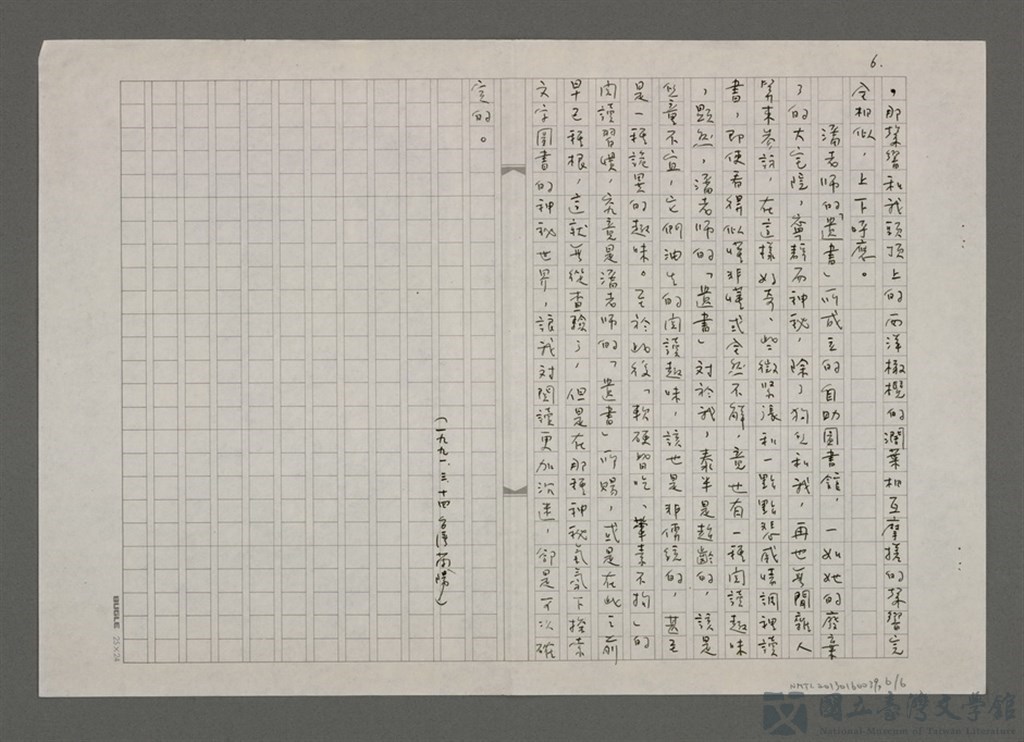 6.
，那摖響和我頭頂上的西洋橄欖的濶葉相互摩搓的摖響完
全相似，上下呼應。
潘老師的「遺書」所成立的自助圖書館，一如她的廢棄
了的大宅院，寧靜而神秘，除了狗仔和我，再也無閒雜人
等來參訪，在這樣好奇、些微緊漲和一點點悲戚情調裡讀
書，即使看得似懂非懂或全然不解，竟也有一種閱讀趣味
，顯然，潘老師的「遺書」対於我，泰半是超齡的，該是
兒童不宜，它們油生的閱讀趣味，該也是非傳統的，甚至
是一種詭異的趣味。至於此後「軟硬皆吃、葷素不拘」的
閱讀習慣，究竟是潘老師的「遺書」所賜，或是在此之前
早已種根，這就無從查驗了，但是在那種神秘氣氛下探索
文字圖書的神秘世界，讓我対閱讀更加沿迷，卻是可以確
定的。
（一九九一．三．十四台灣南陽）
BUGLE 25×24
NMTL20130160039, 6/6
國立臺灣文學館
National Museum of Taiwan Literature